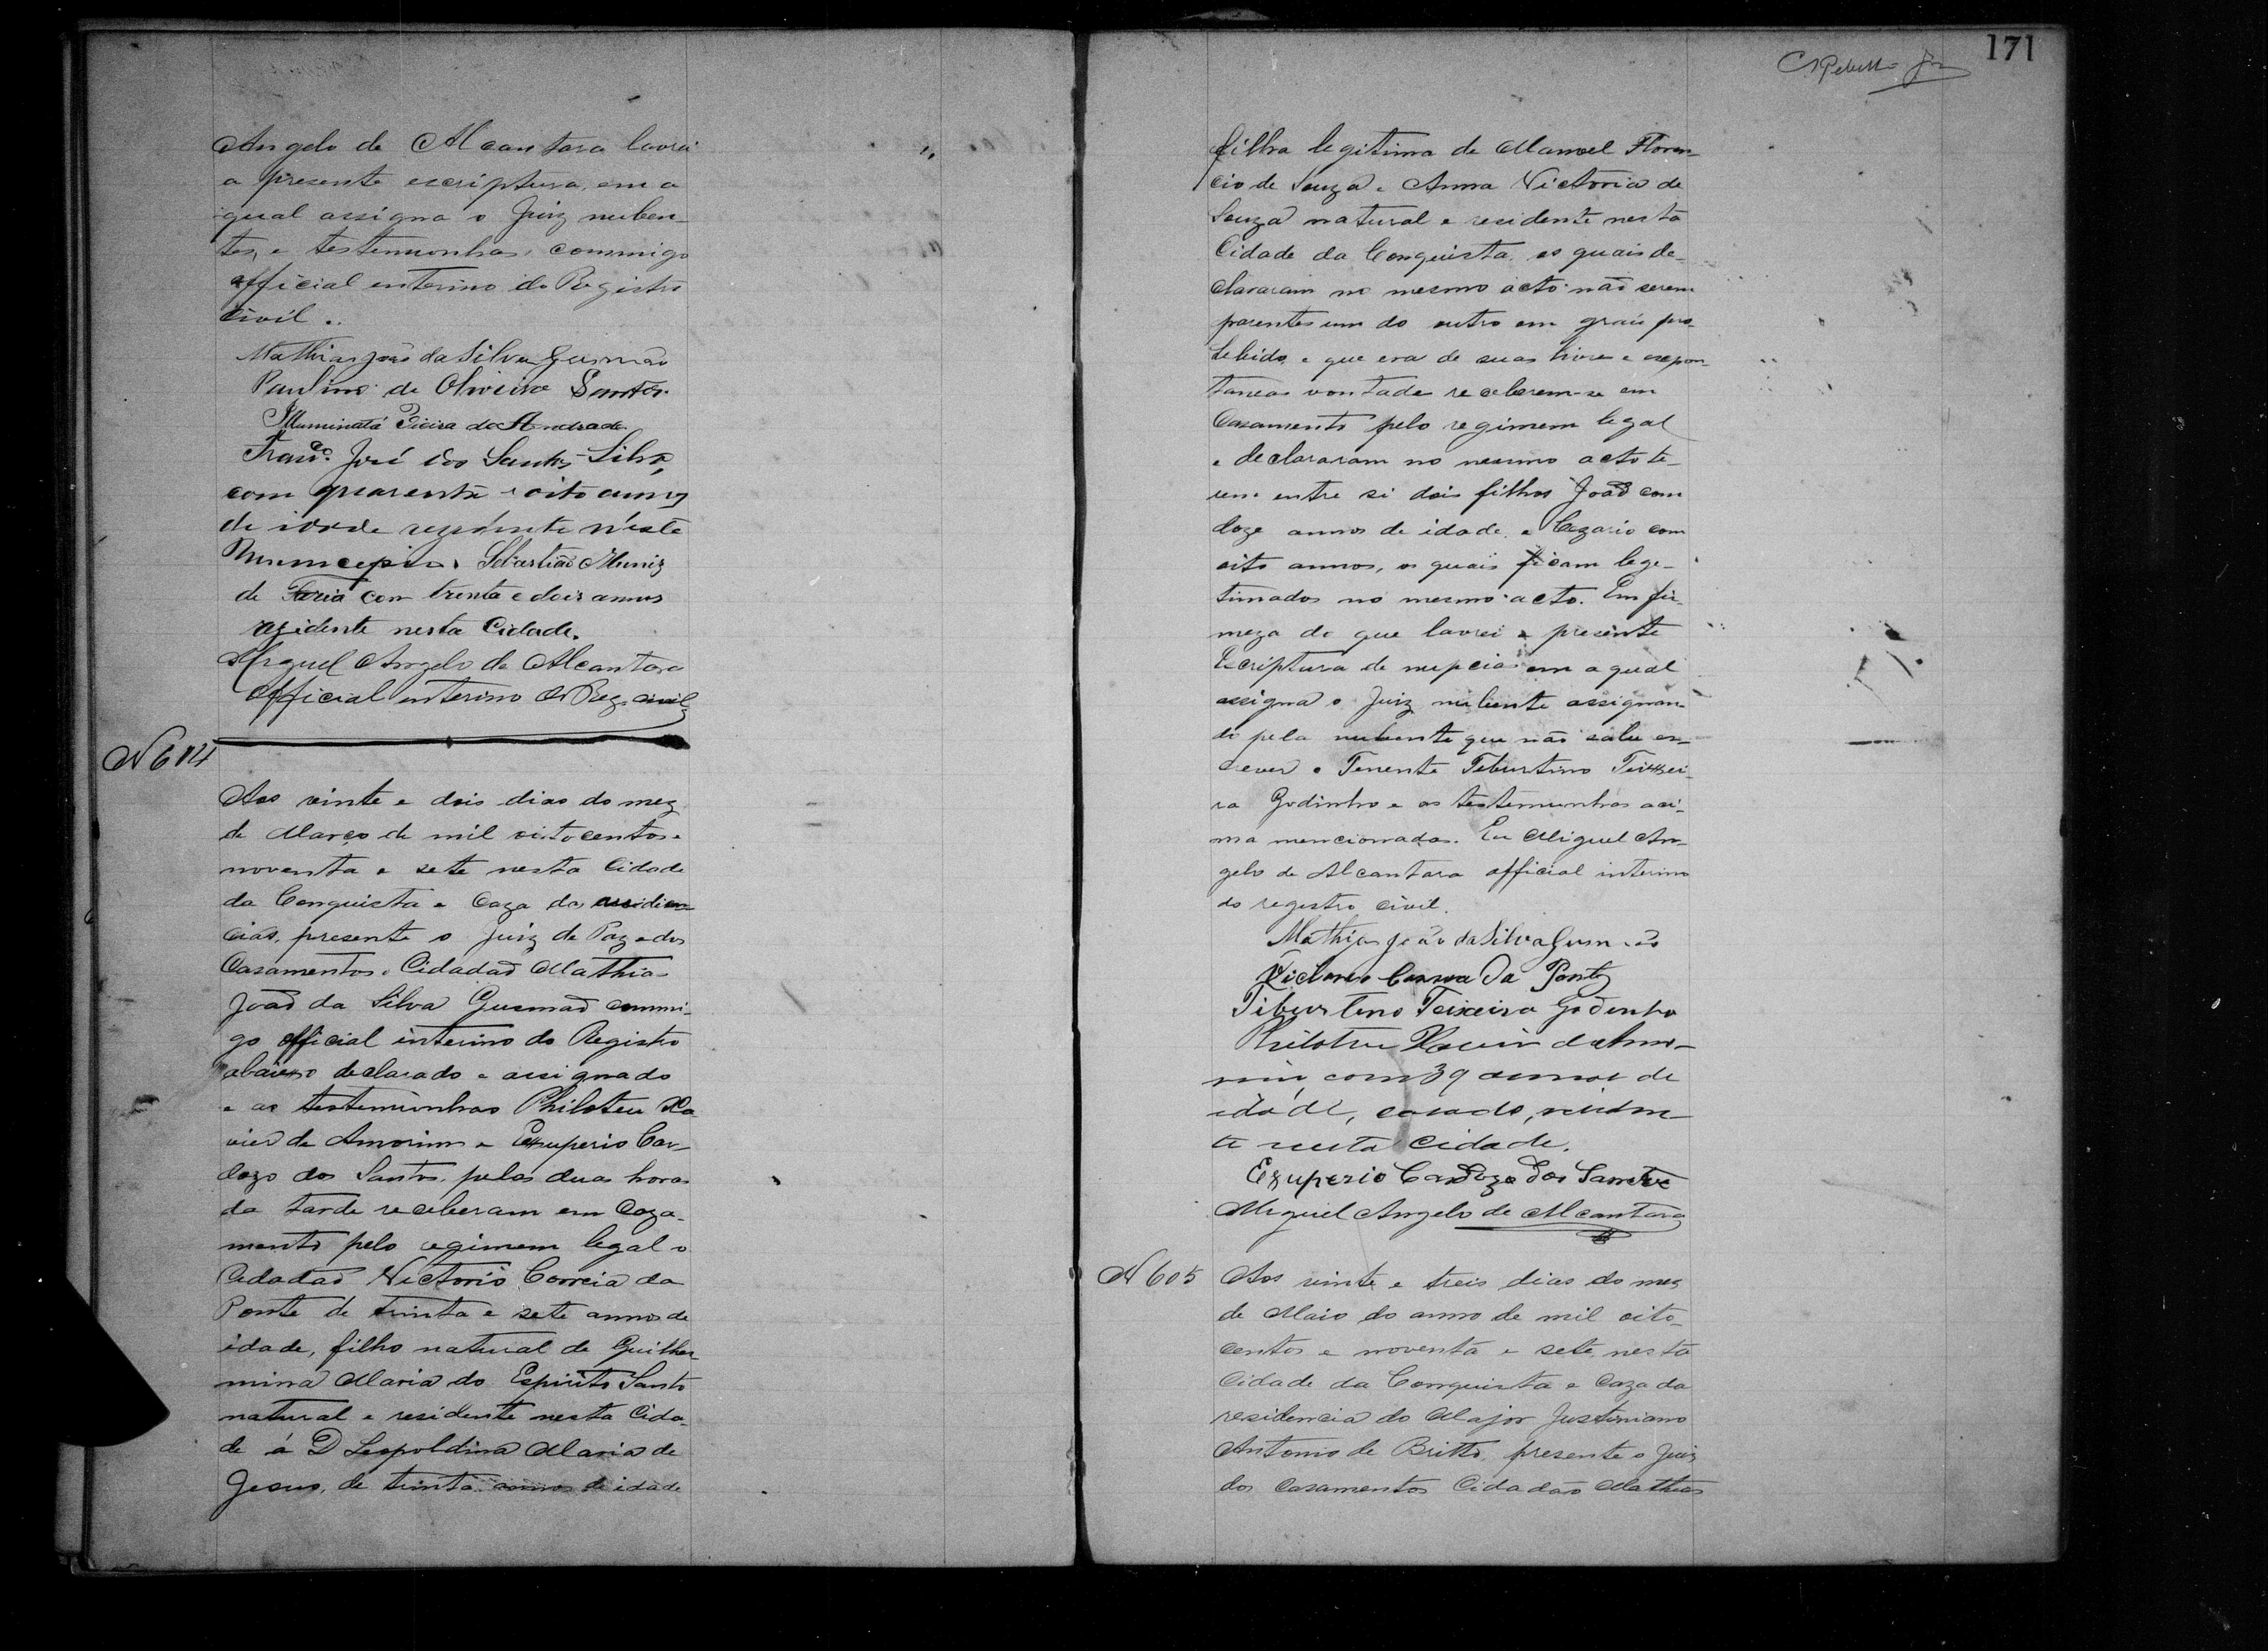 Angelo de Alcantara lavrei
a presente escriptura, em a
qual assigna o Juiz nuben-
tes, e testemunhas, commigo
official enterino do Registro
Civil.
Mathias João da Silva Gusmão
Paulino de Oliveira Santos.
Illuminata Vieira de Andrade
Franco. José dos Santos Silva,
com quarenta e oito annos
de idade residente n'este
Municepio. Sebastião Muniz
de Faria com trenta e dois annos
rezidente nesta Cidade.
Miguel Angelo de Alcantara
Official enterino do Reg. civil
N 604
Aos vinte e dois dias do mez
de Março de mil oitocentos e
noventa e sete nesta Cidade
da Conquista e Caza das audien
cias, presente o Juiz de Paz e dos
Casamentos o Cidadaõ Mathias
Joaõ da Silva Gusmaõ commi-
go official interino do Registro
abaixo declarado e assignado
e as testemunhas Philoteu Xa
vier de Amorim e Exuperio Car-
dozo dos Santos, pelas duas horas
da tarde receberam em Caza-
mento pelo regimem legal o
Cidadaõ Victorio Correia da
Ponte de trinta e sete annos de
idade, filho natural de Guilher-
mina Maria do Espirito Santo
natural e residente nesta Cida-
de á D Leopoldina Maria de
Jesus, de trinta annos de idade
171
filha legitima de Manoel Floren-
cio de Souza e Anna Victoria de
Souza natural e residente nesta
Cidade da Conquista, os quais de-
clararam no mesmo acto não serem
parentes um do outro em grau pro-
hebido, e que era de suas livre e expon-
taneas vontade receberem-se em
Casamento pelo regimem legal
e declararam no mesmo acto te-
rem entre si dois filhos Joaõ com
doze annos de idade, e Cezario com
oito annos, os quais ficam lege-
timados no mesmo acto. Em fir-
meza do que lavrei a presente
Escriptura de nupcias em a qual
assigna o Juiz nubente assignan-
do pela nubente que não sabe es-
crever o Tenente Teburtino Teixei-
ra Godinho e as testemunhas aci-
ma mencionadas. Eu Miguel An-
gelo de Alcantara official interino
do registro civil.
Mathias João da Silva Gusmão
Victorio Correa da Ponte
Tiburtino Teixeira Godinho
Philoteu Xavier de Amo-
rim, com 39 annos de
idade, casado, residen-
te nesta Cidade.
Exuperio Cardozo dos Santos
Miguel Angelo de Alcantara
N 605
Aos vinte e treis dias do mez
de Maio do anno de mil oito-
centos e noventa e sete, nesta
Cidade da Conquista e Caza da
residencia do Major Justiniano
Antonio de Britto, presente o Juiz
dos Casamentos Cidadão Mathias